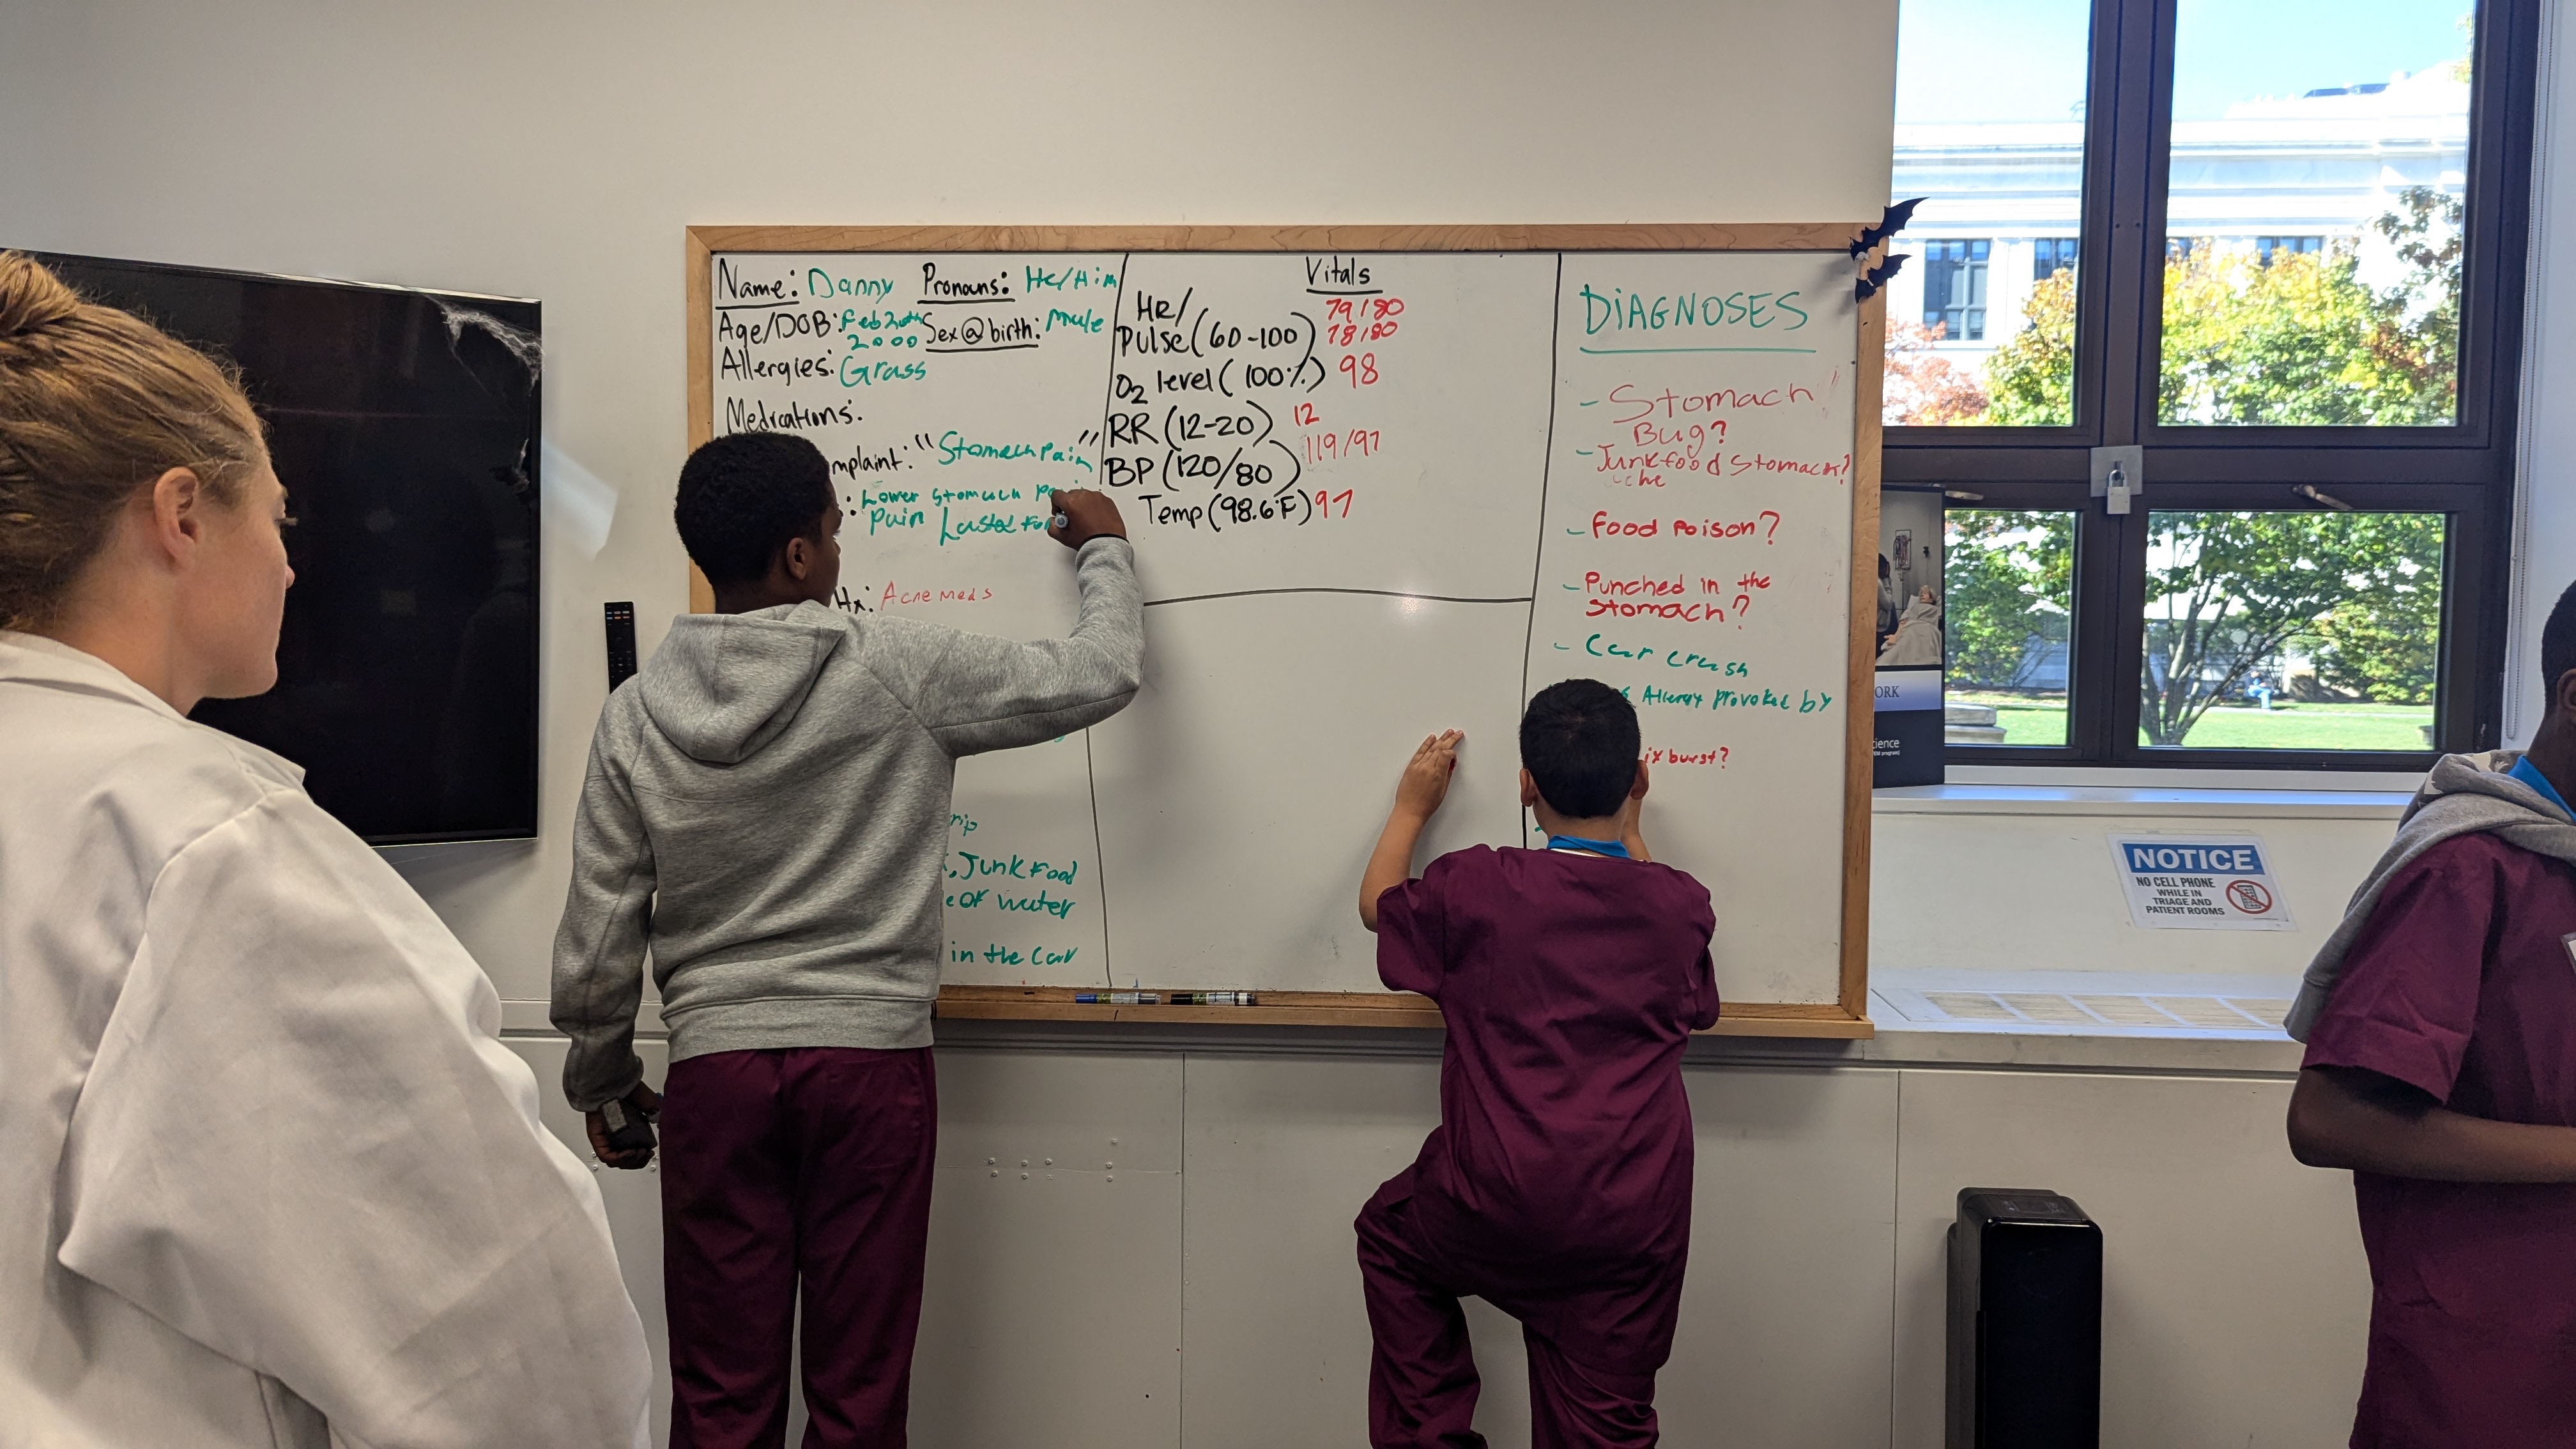 Name: Danny Pronouns: He/Him
Age/DOB: Feb 20th 2000 Sex@birth: Male
Allergies: Grass
Medications:
mplaint: "Stomach pain"
: Lower stomach
pain Lasted for
Hx: Acne meds
rip
, Junk food
e of water
in the car
Vitals
HR/ 79/80
Pulse (60-100) 78/80
O2 level (100%) 98
RR (12-20) 12
BP (120/80) 119/97
Temp (98.6°F) 97
DiAGNOSES
- Stomach
Bug?
- Junkfood Stomach?
che
- Food Poison?
- Punched in the
Stomach?
- Car crash
Allergy Provoked by
ix burst?
ORK
cience
NOTICE
NO CELL PHONE
WHILE IN
TRIAGE AND
PATIENT ROOMS